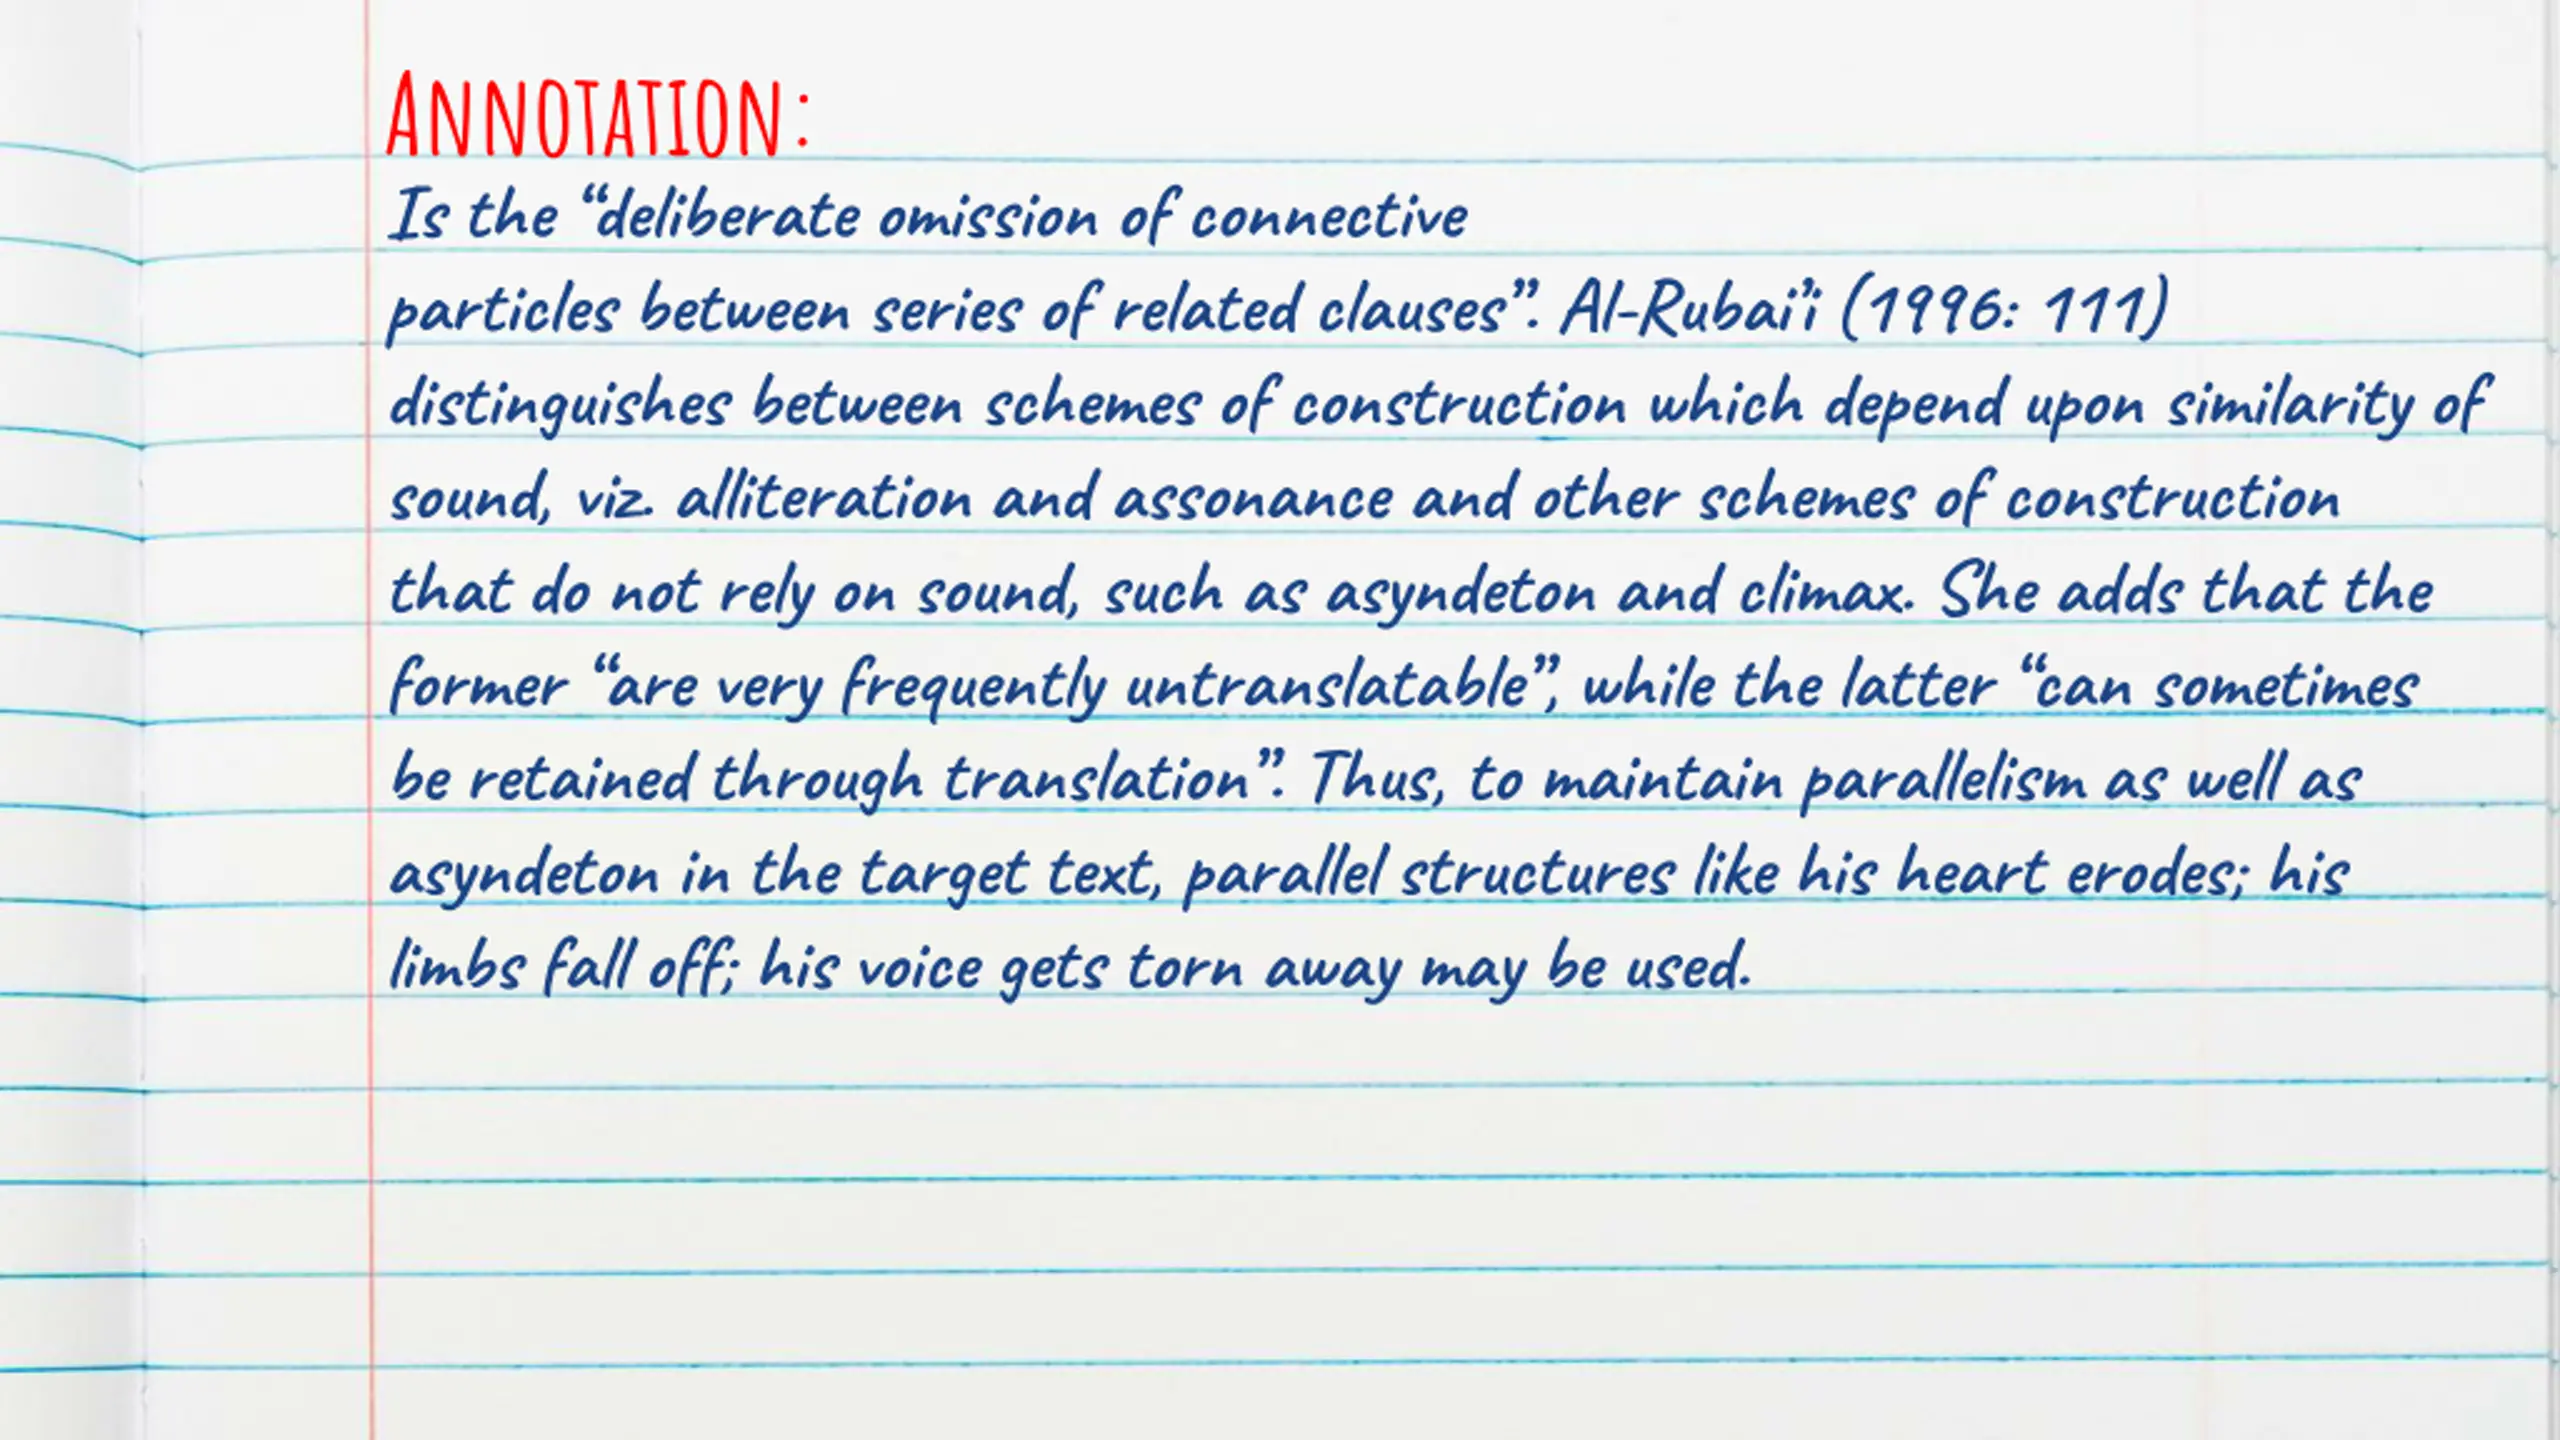 ANNOTATION:
Is the “deliberate omission of connective
particles between series of related clauses”. Al-Rubai’i (1996: 111)
distinguishes between schemes of construction which depend upon similarity of
sound, viz. alliteration and assonance and other schemes of construction
that do not rely on sound, such as asyndeton and climax. She adds that the
former “are very frequently untranslatable”, while the latter “can sometimes
be retained through translation”. Thus, to maintain parallelism as well as
asyndeton in the target text, parallel structures like his heart erodes; his
limbs fall off; his voice gets torn away may be used.